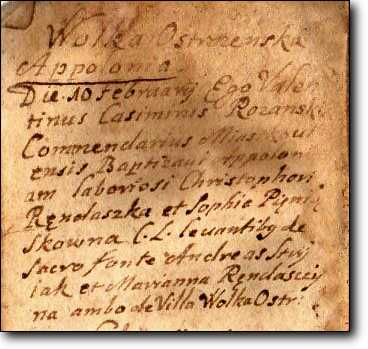 Wolka Ostrzenska
Appolonia
Die 10 Februarij Ego Valen
tinus Casimirus Rozansk
Commendarius Miastkovi
ensis Baptizavi Appolon
am laboriosi Christophori
Rendaszka et Sophia
skowna C.L. levantiby de
Sacro fonte Andreas Strij
iak et Marianna Rendasczij
na ambo de Villa Wolka Ostr: